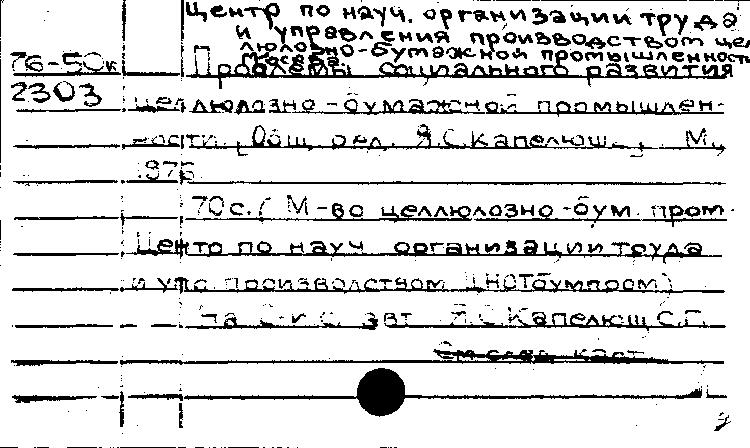 Центр по науч. организации труда
и управления производством цел
люлозно-бумажной промышленность
Москва
76-50к Проблемы социального развития
2303 целлюлозно-бумажной промышлен-
ности. [Общ. ред. Я.С.Капелюш...]. М.,
1975
70с. (М-во целлюлозно-бум. пром.
Центр по науч. организации труда
и упр. производством ЦНОТбумпром)
На с. авт. Я.С.Капелюш, С.Г.
См. след. карт.